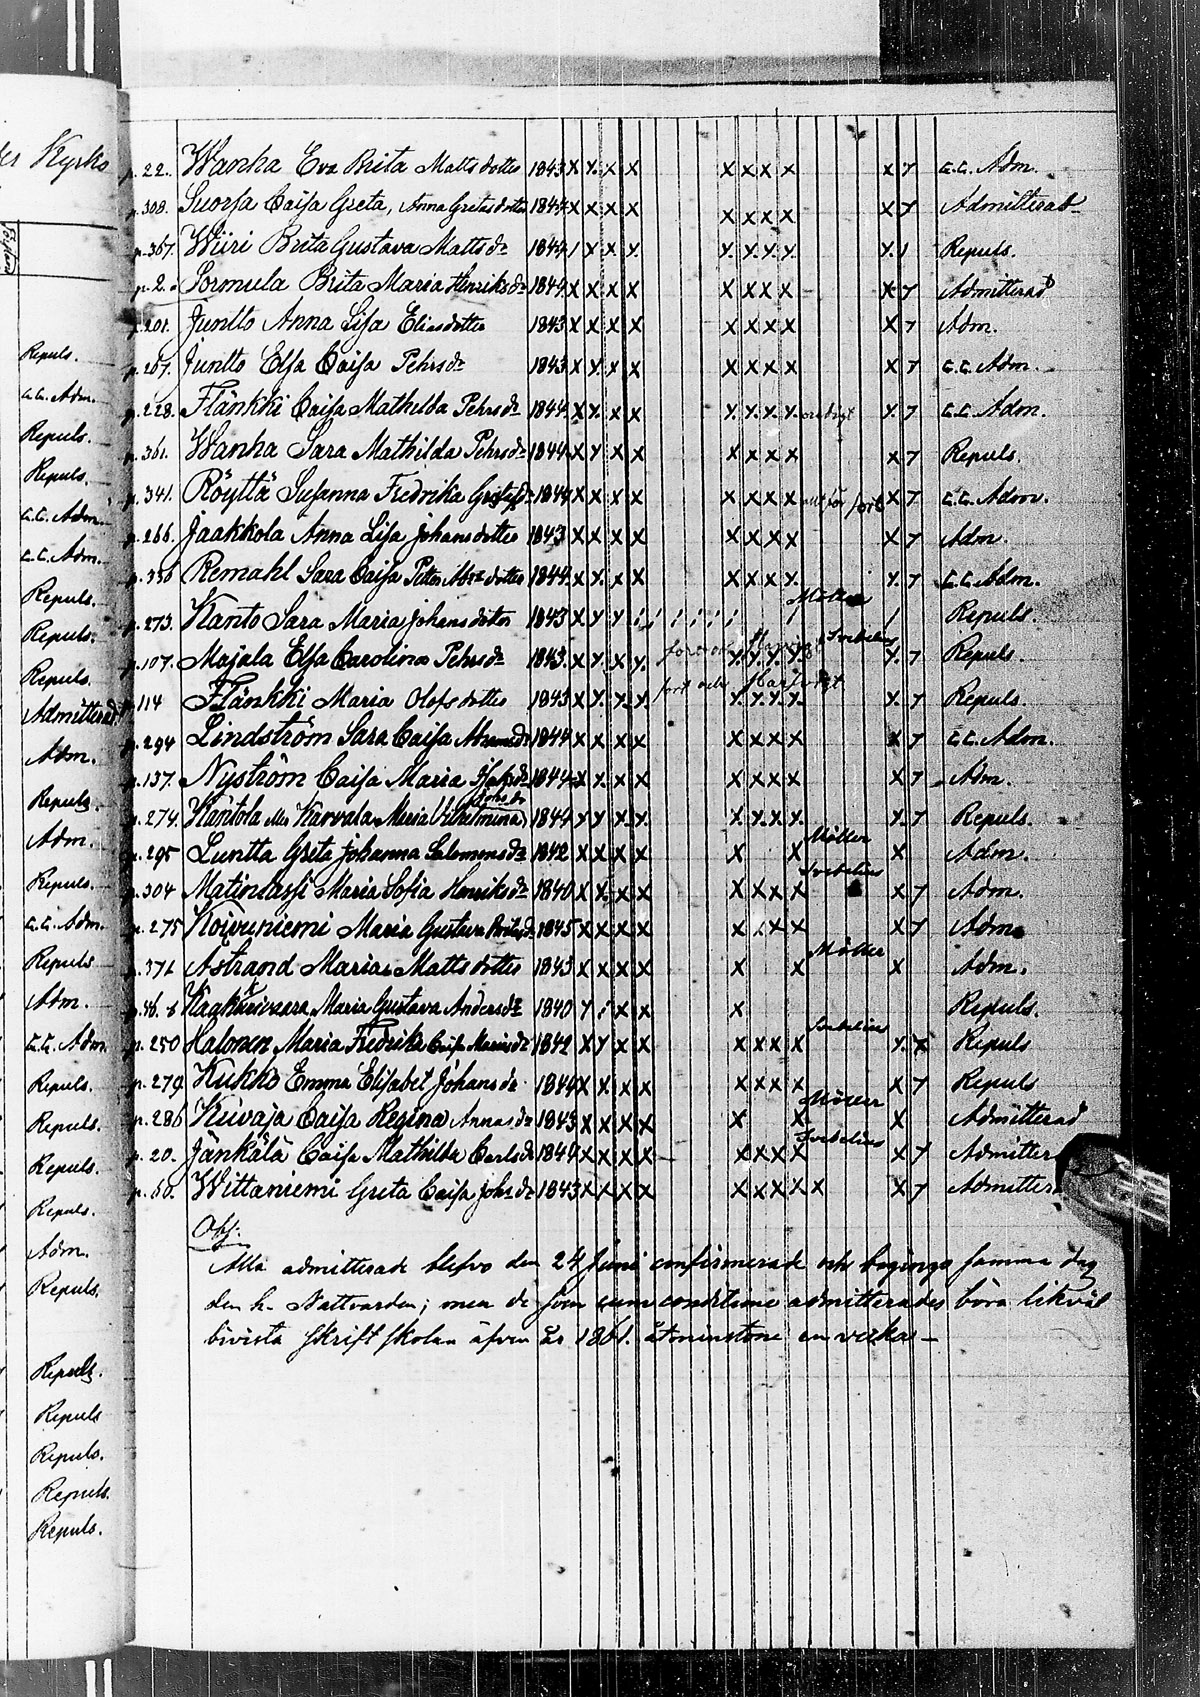 Kyrko
Repuls.
C.C. Adm.
Repuls.
Repuls.
C.C. Adm.
C.C. Adm.
Repuls.
Repuls.
Repuls.
Admitterad
Adm.
Repuls.
Adm.
Repuls.
C.C. Adm.
Repuls
Adm.
C.C. Adm.
Repuls.
Repuls.
Repuls.
Repuls.
Adm.
Repuls.
Repuls.
Repuls
Repuls.
Repuls.
Repuls.
p. 22. Wanha Eva Brita Mattsdotter 1843 x x x x x x x x x 7 C.C. Adm.
p. 308. Suorsa Caisa Greta, Anna Gretas dotter 1844 x x x x x x x x x 7 Admitterad
p. 367. Wiiri Brita Gustava Mattsdr 1844 / x x x x x x x x / Repuls.
p. 2. Sormula Brita Maria Henriksdr 1844 x x x x x x x x x 7 Admitterad
p. 201. Juntto Anna Lisa Eliasdotter 1843 x x x x x x x x x 7 Adm.
p. 207. Juntto Elsa Caisa Pehrsdr 1843 x x x x x x x x x 7 C.C. Adm.
p. 228. Flänkki Caisa Mathilda Pehrsdr 1844 x x x x x x x x x 7 C.C. Adm.
p. 361. Wanha Sara Mathilda Pehrsdr 1844 x x x x x x x x x 7 Repuls.
p. 341. Röyttä Susanna Fredrika 1844 x x x x x x x x allt för fort x 7 C.C. Adm.
p. 266. Jaakkola Anna Lisa Johansdotter 1843 x x x x x x x x x 7 Adm.
Remahl Sara Caisa Petter dotter 1844 x x x x x x x x x 7 C.C. Adm.
Möller
p. 273. Kanto Sara Maria Johansdotter 1843 x x x / / / / / / / / Repuls.
Svebelius
p. 107. Majala Elsa Carolina Pehrsdr 1843 x x x x x x x x x 7 Repuls.
fort och
p. 114 Flänkki Maria Olofsdotter 1843 x x x x x x x x x 7 Repuls.
p. 294 Lindström Sara Caisa 1844 x x x x x x x x x 7 C.C. Adm.
p. 137. Nyström Caisa Maria 1844 x x x x x x x x x 7 Adm.
Johs dr
p. 274. Käntola Karvala Maria Vilhelmina 1844 x x x x x x x x x 7 Repuls.
Möller
p. 295 Luntta Greta Johanna Salomonsdr 1842 x x x x x x x Adm.
Svebelius
p. 304 Matinlassi Maria Sofia Henriksdr 1840 x x x x x x x x x 7 Adm.
p. 275 Koivuniemi Maria Gustava 1845 x x x x x x x x 7 Adm.
Möller
p. 371 Astrand Maria Matts dotter 1843 x x x x x x x Adm.
Maria Gustava Andersdr 1840 x x x x Repuls.
Svebelius
p. 250 Halonen Maria Fredrika Caisa Mariasdr 1842 x x x x x x x x x x Repuls
p. 279 Kukko Emma Elisabet Johansdr 1844 x x x x x x x x x 7 Repuls
Möller
p. 286 Kuivaja Caisa Regina Annasdr 1843 x x x x x x x Admitterad
Svebelius
p. 20. Jänkälä Caisa Mathilda Carlsdr 1844 x x x x x x x x x 7 Admitter
p. 60. Wittaniemi Greta Caisa Johsdr 1843 x x x x x x x x x x 7 Admitter
Obs:
Alla admitterade blefvo den 24 Juni confirmerade och begingo samma dag
den h. Nattvarden; men de som cum conditione admitterades böra likväl
bivista skriftskolan äfven år 1861. åtminstone en vecka —